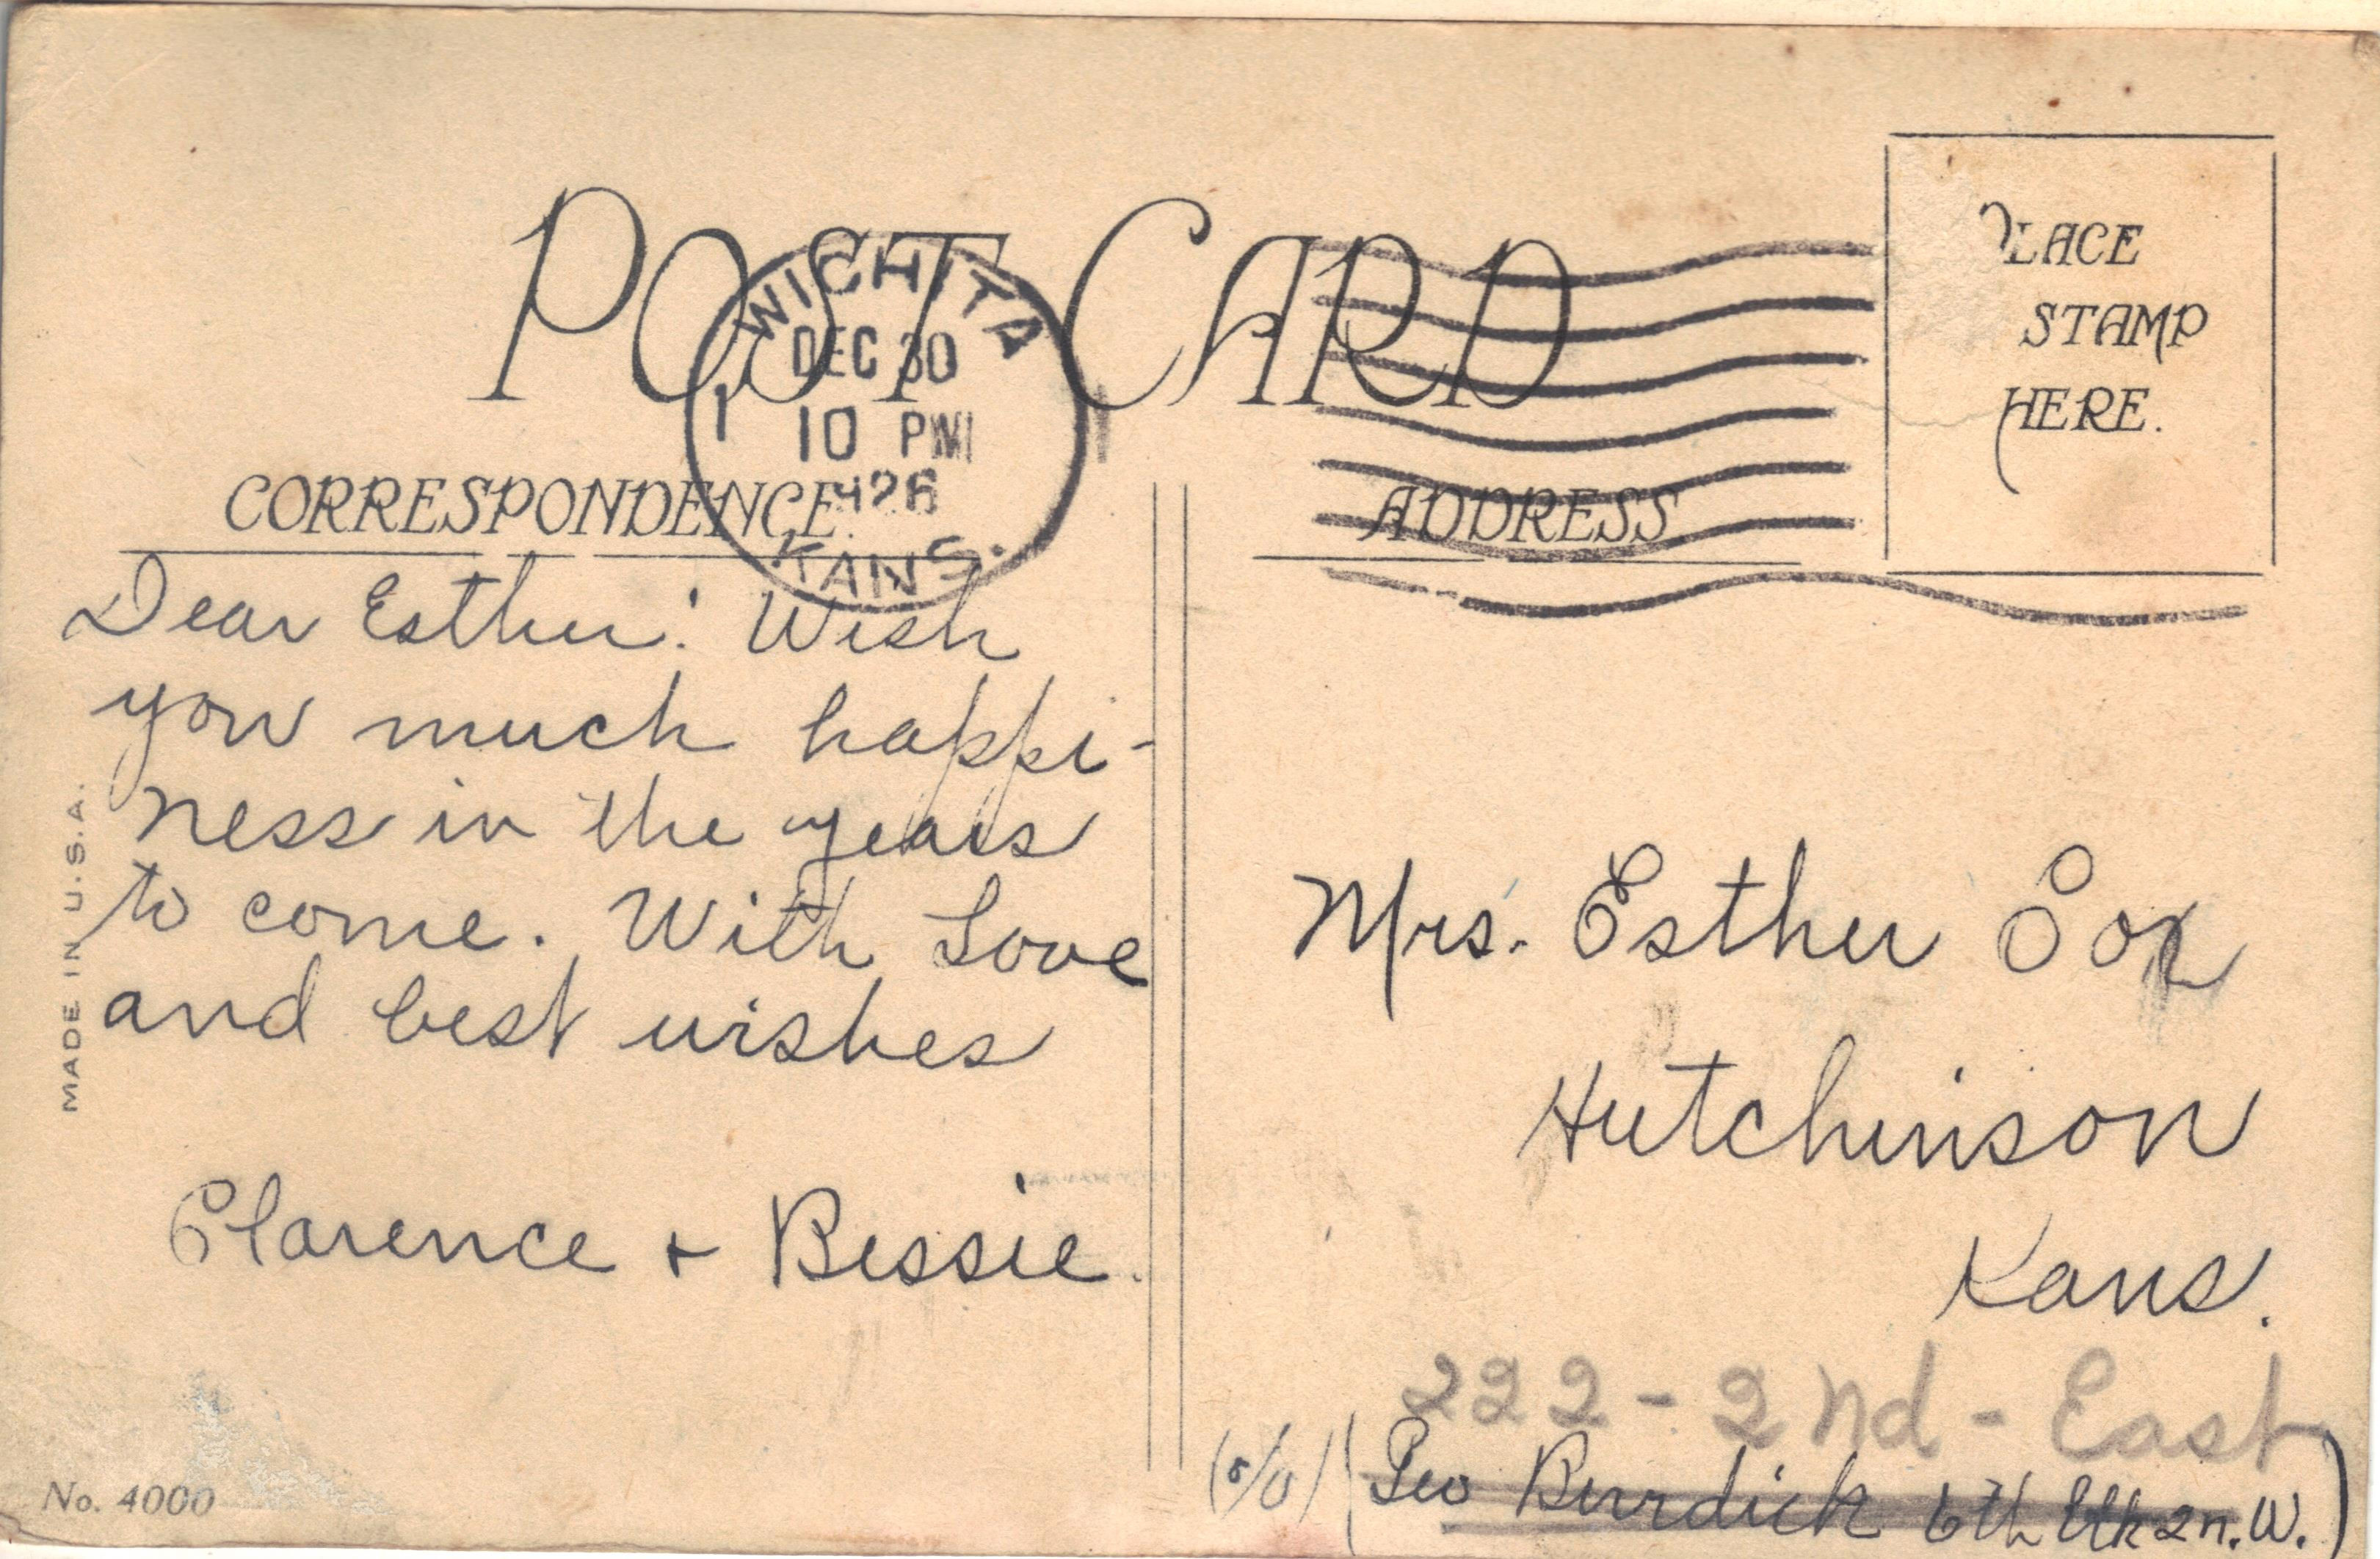 POST CARD
WICHITA
DEC 30
10 PM
1926
KANS.
1
PLACE
STAMP
HERE.
CORRESPONDENCE.
ADDRESS
Dear Esther: Wish
you much happi-
ness in the years
to come. With Love
and best wishes
Clarence + Bessie.
Mrs. Esther Cox
Hutchinson
Kans.
222 - 2nd - East
(c/o) (Geo Burdick 6th 2 n.W.)
MADE IN U.S.A.
No. 4000